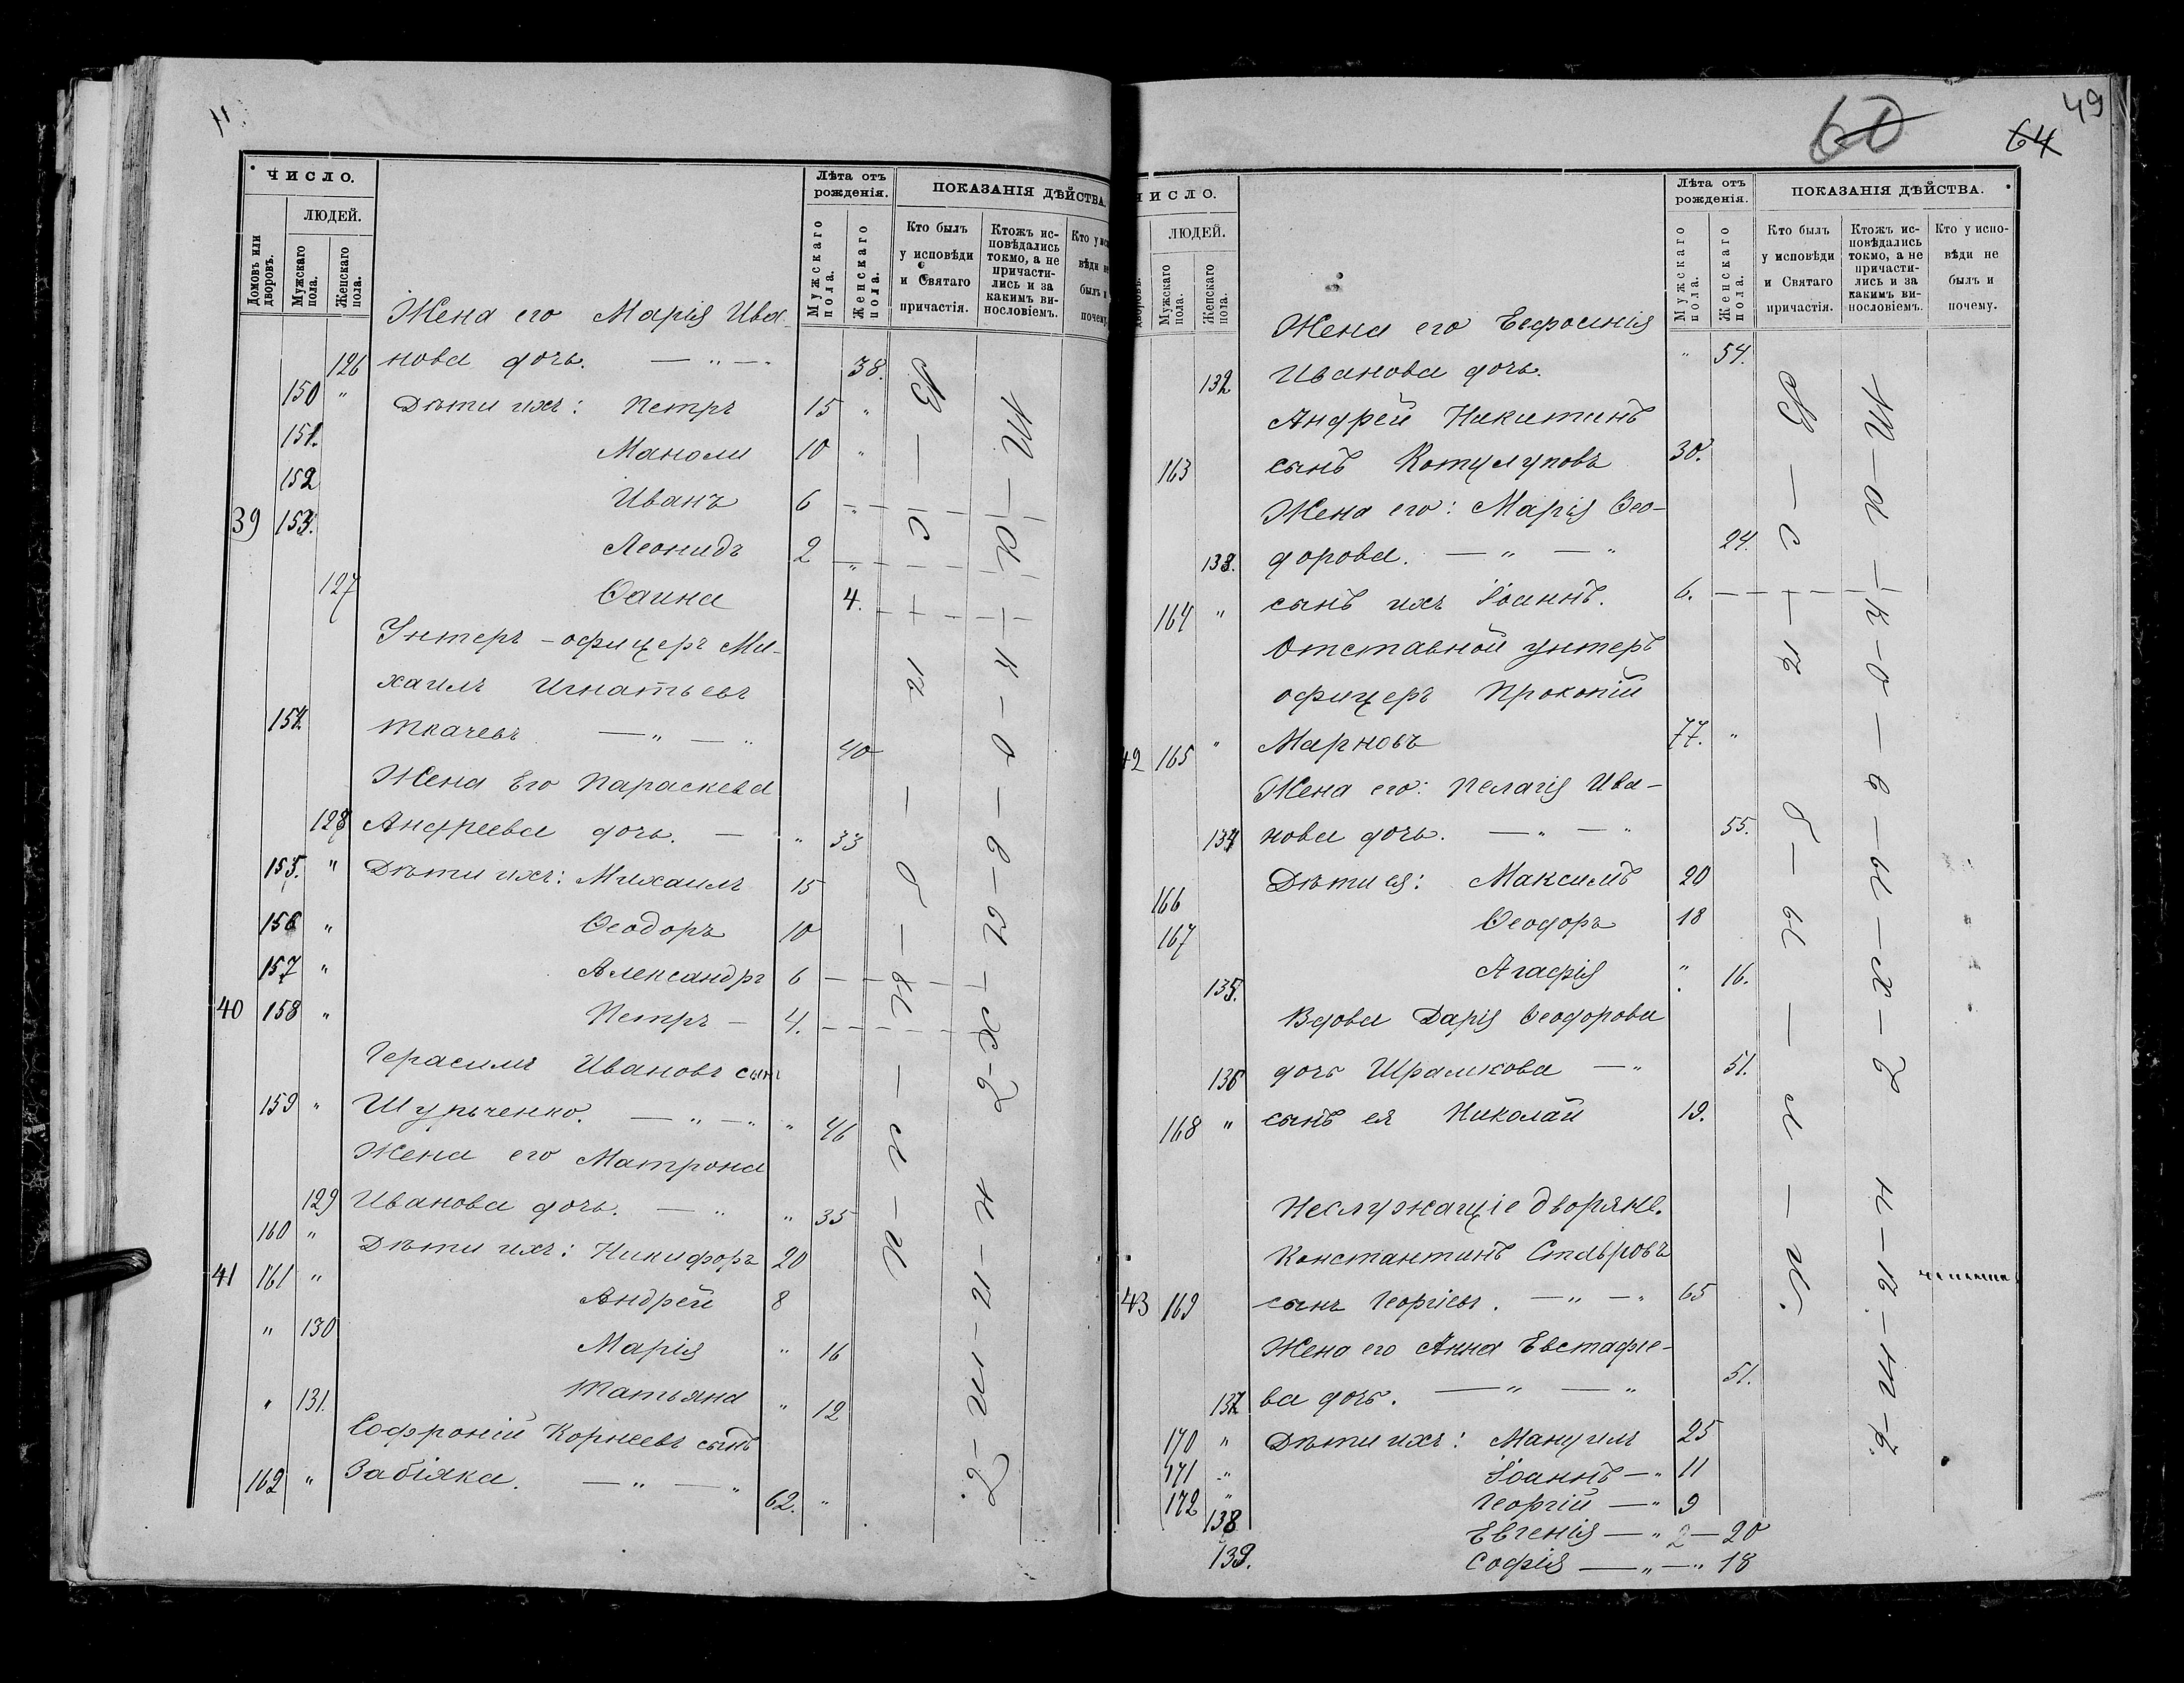 ЧИСЛО.
ЛЮДЕЙ.
Домовъ или дворовъ.
Мужскаго пола.
Женскаго пола.
Лѣта отъ рожденія.
Мужскаго пола.
Женскаго пола.
ПОКАЗАНІЯ ДѢЙСТВА.
Кто былъ у исповѣди и Святаго причастія.
Ктожъ исповѣдались токмо, а не причастились и за какимъ винословіемъ.
Жена его Марія Ива-
126 нова дочь. — " — " 38.
150 " Дѣти ихъ: Петръ 15 "
151. Маноли 10 "
152 Иванъ 6 "
39 153. Леонидъ 2 "
127 Ѳаина 4.
Унтеръ-офицеръ Ми-
хаилъ Игнатьевъ
154 Ткачевъ — " — " 40
Жена Его Параскева
128 Андреева дочь. — " 33
155. " Дѣти ихъ: Михаилъ 15
156 " Ѳеодоръ 10
157 " Александръ 6
40 158 " Петръ — 4.
Герасимъ Ивановъ сынъ
159 " Шульченко. — " — " " 46
Жена его Матрона
129 Иванова дочь. — " " 35
160 " Дѣти ихъ: Никифоръ 20
41 161 " Андрей 8
" 130 Марія " 16
" 131. Татьяна " 12
Софроній Корнеевъ сынъ
162 " Забіяка. — " — " 62. "
49
60
64
ЧИСЛО.
ЛЮДЕЙ.
дворовъ.
Мужскаго пола.
Женскаго пола.
Лѣта отъ рожденія.
Мужскаго пола.
Женскаго пола.
ПОКАЗАНІЯ ДѢЙСТВА.
Кто былъ у исповѣди и Святаго причастія.
Ктожъ исповѣдались токмо, а не причастились и за какимъ винословіемъ.
Кто у исповѣди не былъ и почему.
Жена его Евфосинія
132 Иванова дочь. " 54.
Андрей Никитинъ
163 сынъ Котулуповъ 30.
Жена его: Марія Ѳео-
133. дорова. — " — " 24.
164 " сынъ ихъ Іоаннъ. 6.
Отставной унтеръ
офицеръ Прокопій
42 165 " Марновъ 77. "
Жена его: Пелагія Ива-
134 нова дочь. — " — " 55.
Дѣти ея: Максимъ 20
166
167 Ѳеодоръ 18
135. Агафія " 16.
Вдова Дарія Ѳеодорова
136 дочь Шрамкова — " 51.
168 " сынъ ея Николай 19.
Неслужащіе дворяне.
Константинъ Ставровъ
43 169 сынъ Георгіевъ. — " — " 65
Жена его Анна Евстафіе-
137 ва дочь. — " — " 51.
170 " Дѣти ихъ: Мануилъ 25
171 " Іоаннъ — " 11
172 " Георгій — " 9
138 Евгенія — " 2 — 20
139. Софія — " — " 18